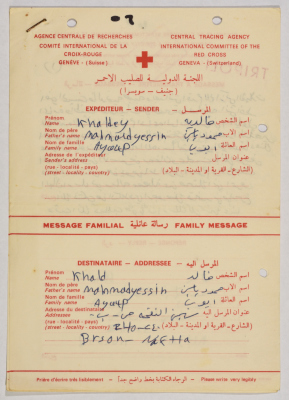 AGENCE CENTRALE DE RECHERCHES
COMITÉ INTERNATIONAL DE LA
CROIX-ROUGE
GENÈVE - (Suisse)
CENTRAL TRACING AGENCY
INTERNATIONAL COMMITTEE OF THE
RED CROSS
GENEVA - (Switzerland)
اللجنة الدولية للصليب الاحمر
(جنيف - سويسرا)
EXPÉDITEUR - SENDER المرسل
Prénom
Name Khaldey خالديه اسم الشخص
Nom de père
Father's name mahmoldyessin محمود ياسين اسم الاب
Nom de famille
Family name Ayoup ايوب اسم العائلة
Adresse de l'expéditeur
Sender's address عنوان المرسل
(rue - localité - pays)
(street - locality - country) (الشارع - القرية او المدينة - البلاد)
MESSAGE FAMILIAL رسالة عائلية FAMILY MESSAGE
DESTINATAIRE - ADDRESSEE المرسل اليه
Prénom
Name Khald خالد اسم الشخص
Nom de père
Father's name mahmodyessin محمود ياسين اسم الاب
Nom de famille
Family name Ayoup ايوب اسم العائلة
Adresse du destinataire
Addressee's address عنوان المرسل اليه
(rue - localité - pays)
(street - locality - country) (الشارع - القرية او المدينة - البلاد)
Prière d'écrire très lisiblement - الرجاء الكتابة بخط واضح جداً - Please write very legibly